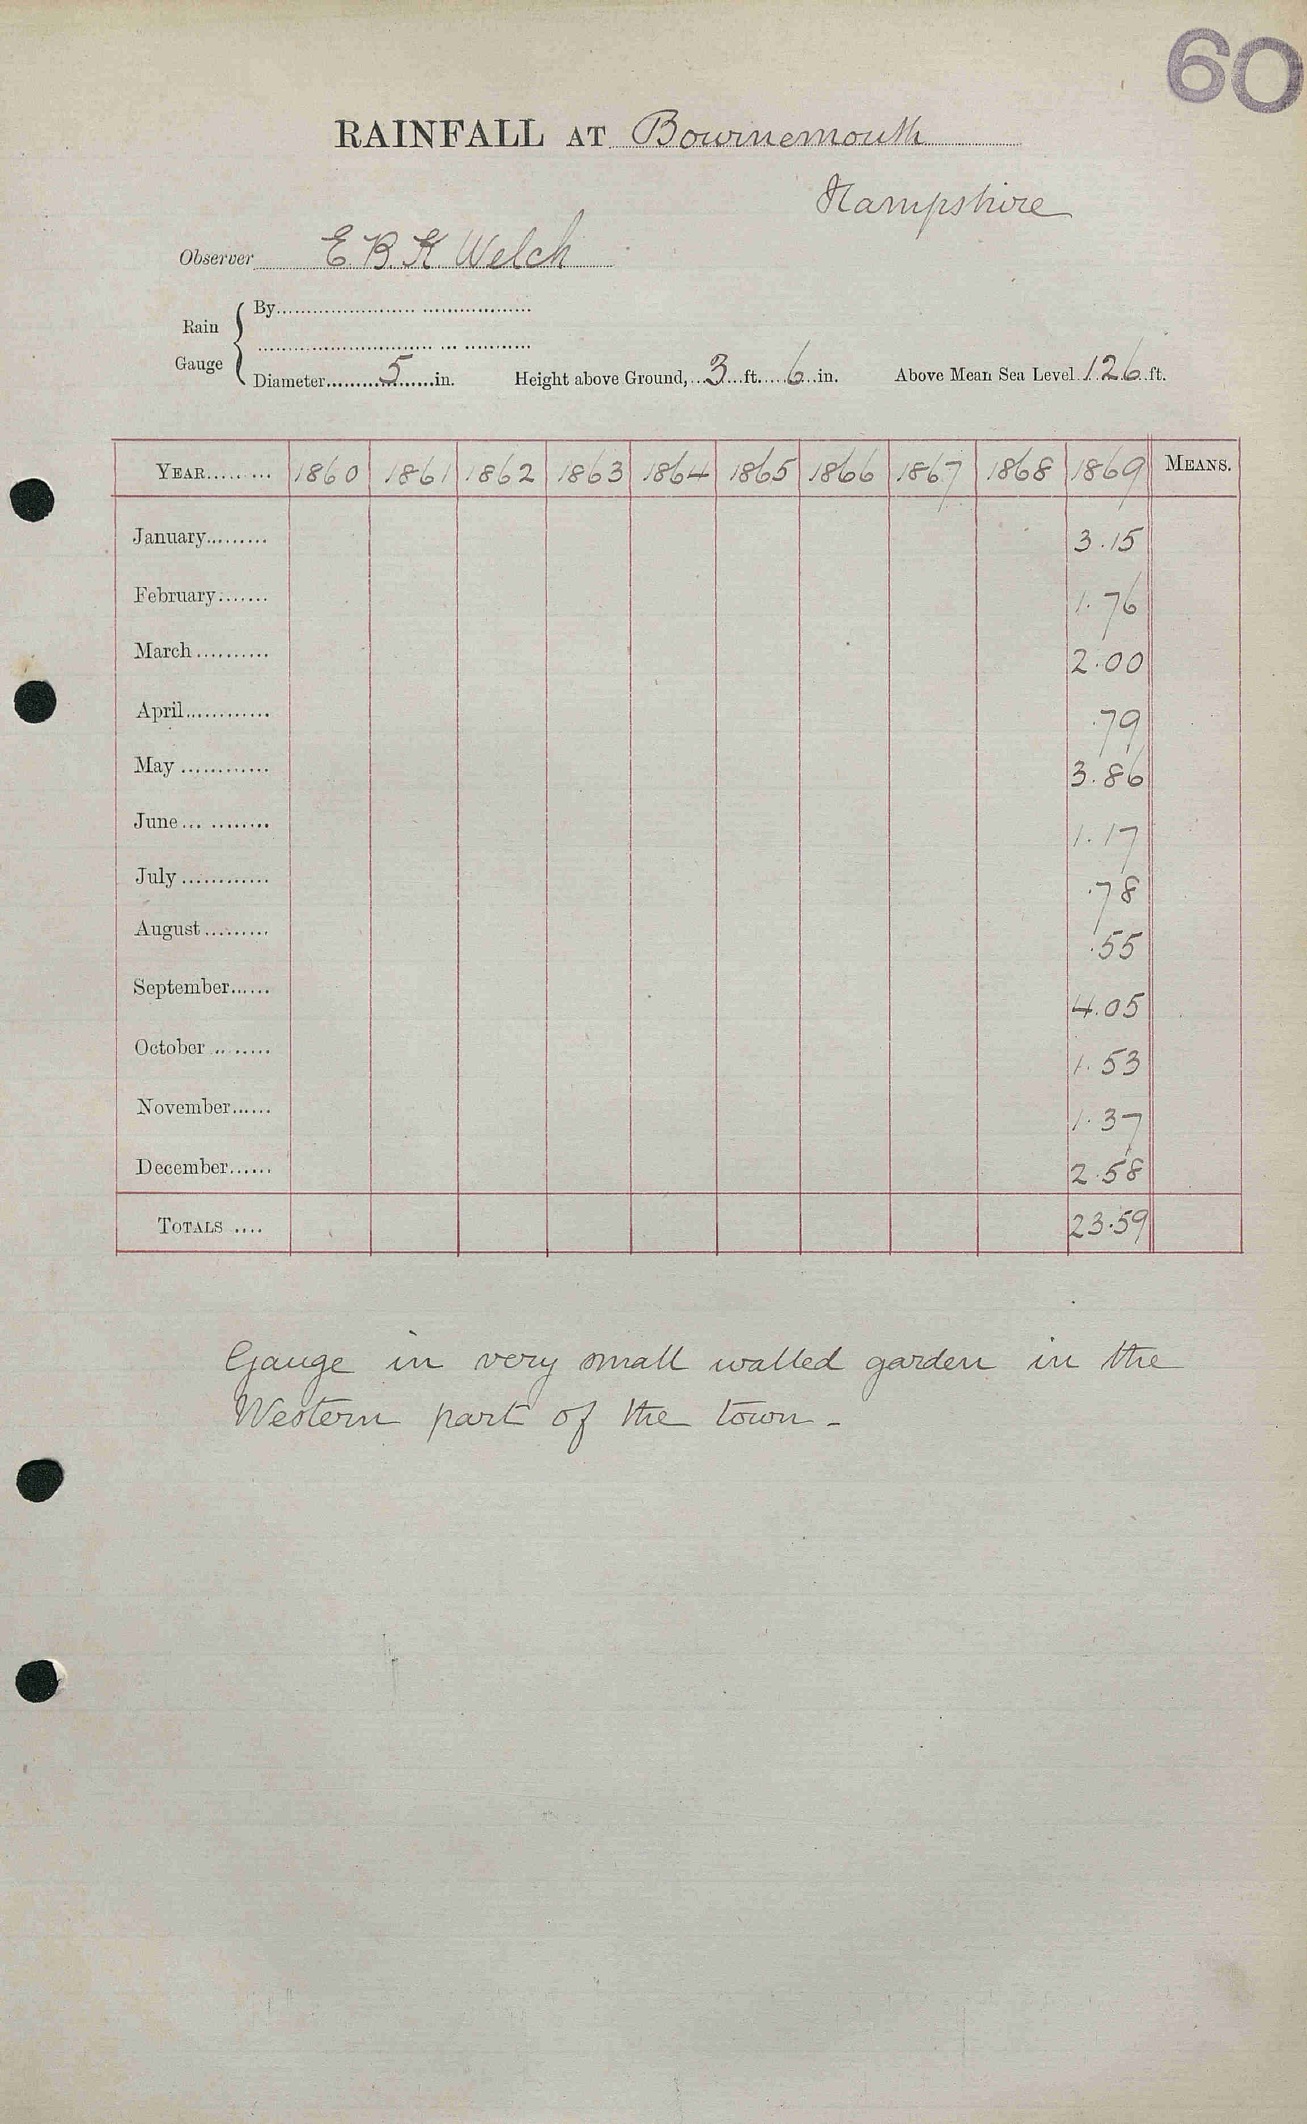 60
RAINFALL AT Bournemouth
Hampshire
Observer E. B. K. Welch
Rain Gauge { By
Diameter 5 in. Height above Ground, 3 ft. 6 in. Above Mean Sea Level 126 ft.
YEAR 1860 1861 1862 1863 1864 1865 1866 1867 1868 1869 MEANS.
January 3.15
February 1.76
March 2.00
April .79
May 3.86
June 1.17
July .78
August .55
September 4.05
October 1.53
November 1.37
December 2.58
TOTALS 23.59
Gauge in very small walled garden in the
Western part of the town -